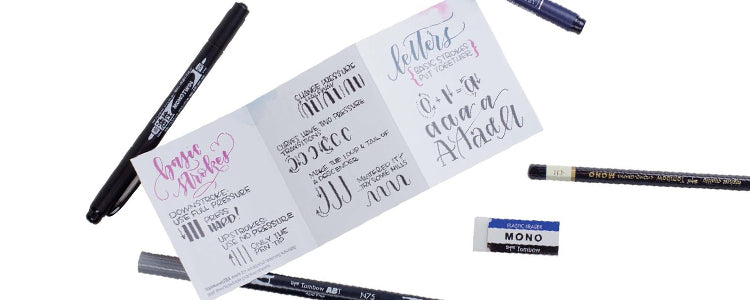 basic
strokes
DOWNSTROKE:
USE FULL PRESSURE
PRESS
HARD!
UPSTROKES:
USE NO PRESSURE
ONLY THE
PEN TIP
CHANGE PRESSURE
CURVES HAVE TWO PRESSURE
TRANSITIONS
MAKE THE LOOP & TAIL OF
A DESCENDER
MASTERED IT?
TRY SOME HILLS
letters
{BASIC STROKES
PUT TOGETHER}
a a a a
MONOTWIN
MONO
PLASTIC ERASER
MONO
Tombow
Tombow ABT
N75